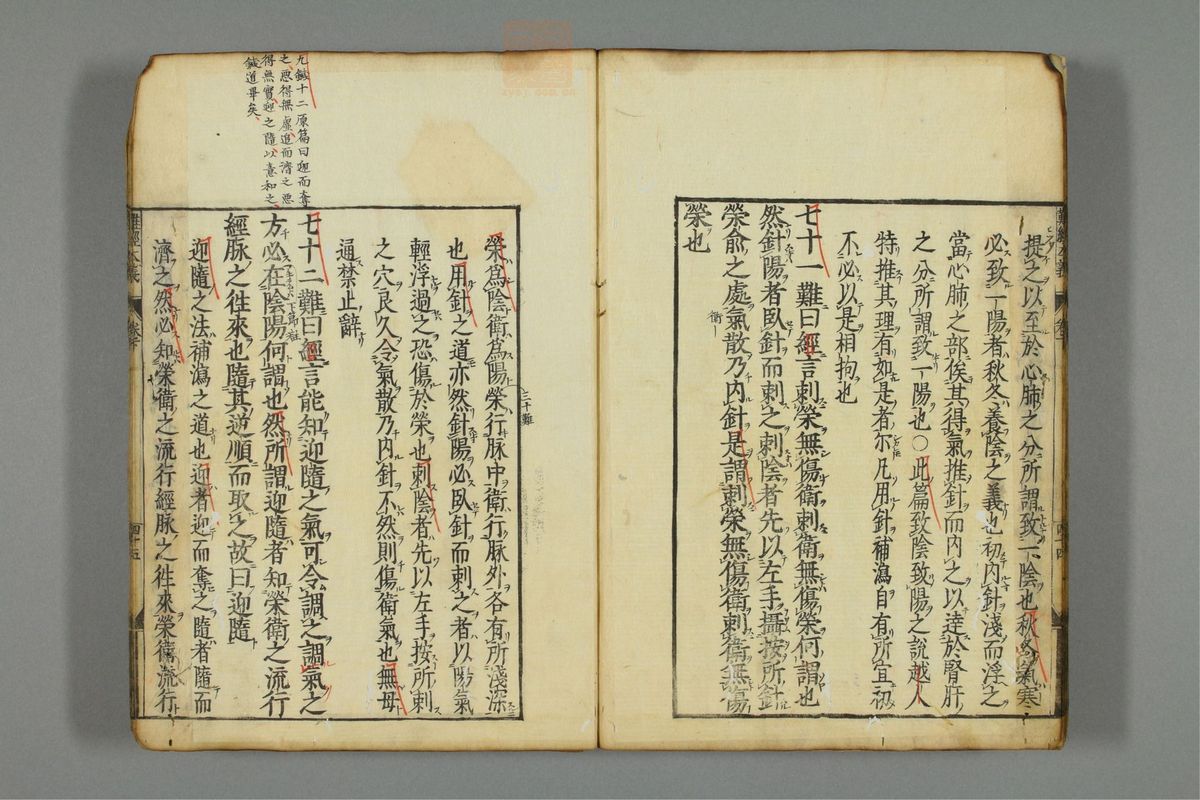 提之以至於心肺之分所謂致一陰也秋冬氣寒
必致一陽者秋冬養陰之義也初內針淺而浮之
當心肺之部俟其得氣推針而內之以達於腎肝
之分所謂致一陽也○此篇致陰致陽之說越人
特推其理有如是者尔凡用針補瀉自有所宜初
不必以是相拘也
七十一難曰經言刺榮無傷衛刺衛無傷榮何謂也
然針陽者臥針而刺之刺陰者先以左手攝按所針
榮俞之處氣散乃內針是謂刺榮無傷衛刺衛無傷
榮也
榮爲陰衛爲陽榮行脉中衛行脉外各有所淺深
也用針之道亦然針陽必臥針而刺之者以陽氣
輕浮過之恐傷於榮也刺陰者先以左手按所刺
之穴良久令氣散乃內針不然則傷衛氣也無毋
通禁止辭
七十二難曰經言能知迎隨之氣可令調之調氣之
方必在陰陽何謂也然所謂迎隨者知榮衛之流行
經脉之徃來也隨其逆順而取之故曰迎隨
迎隨之法補瀉之道也迎者迎而奪之隨者隨而
濟之然必知榮衛之流行經脉之徃來榮衛流行
九鍼十二原篇曰迎而奪
之惡得無虛追而濟之惡
得無實迎之隨之以意和之
鍼道畢矣
三十難
難經本義
四十五